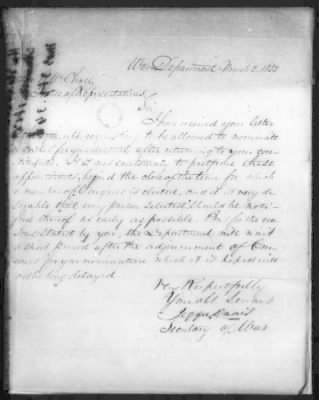 War Department March 2. 1855
House of Representatives,
Sir,
I have received your letter
to be allowed to nominate
a cadet for appointment after returning to your con
It is not customary to postpone these
appointments beyond the close of the term for which
a member of Congress is elected, and it is very de
sirable that any person selected should be noti
fied thereof as early as possible. But for the rea
sons stated by you, the Department will wait
a short period after the adjournment of Con
gress for your nomination which it is hoped will
not be long delayed
Very Respectfully
Your obt. Servant
Jeffn Davis
Secretary of War